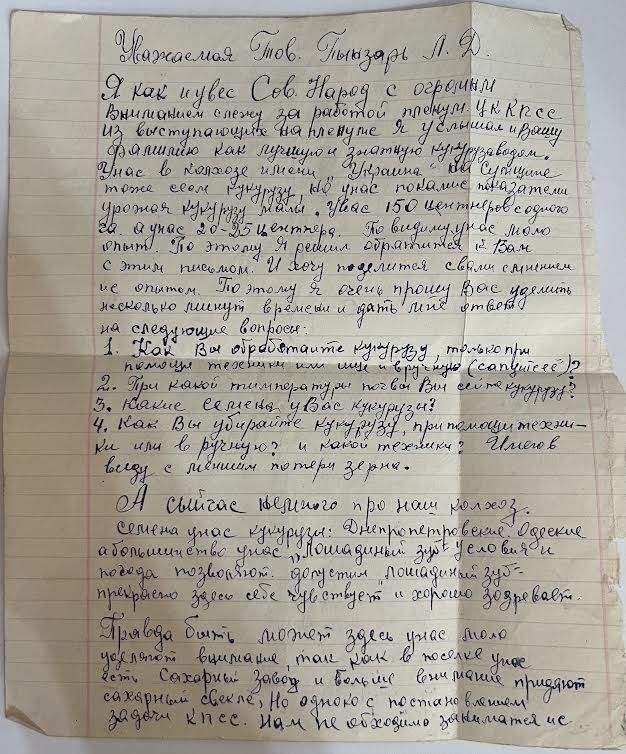 Уважаемая Тов. Пынзарь Л. Д.
Я как и увес Сов. Народ с огромым
вниманием слежу за работой пленум. ЦК КПСС
из выступающих на пленуме я услышал и Вашу
фамилию как лучшую и знатную кукурузаводом.
Унас в колхозе имени „Украина" на Сумщине
тоже сеем кукурузу, но унас покамис показатели
урожая кукурузу малы. Увас 150 центнеров с одного
га. а унас 20-25 центнера. По видиму унас мало
опыт. По этому я решил обратится к Вам
с этим письмом. И хочу поделится свами с мнением
ис опытом. По этому я очень прошу Вас уделить
несколько минут времени и дать мне ответ
на следующие вопросы:
1. Как Вы обработаите кукурузу, только при
помощи техники или ище и вручную (сапуите её)?
2. При какой температуры почвы Вы сейте кукурузу?
3. Какие семена у Вас кукурузы?
4. Как Вы убирайте кукурузу, при помощи техни-
ки или в ручную? и какой техники? Имегов
виду с меншим потери зерна.
А сыйчас немного про наш колхоз.
Семена унас кукурузы: Днепропетровские. Одеские
а большинство унас „Лошадиный зуб" условия и
погода позволяют. допустим „Лошадиный зуб"-
прекрасно здесь себе чувствует и хорошо зозревает.
Правда быть может здесь унас мало
уделяют внимание, так как в поселке унас
есть Сахарный завод и больше внимание придают
сахарный свекле, Но однако с постановлением
задачи КПСС. Нам не обходимо заниматся ис